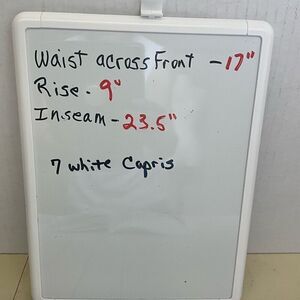 Waist across Front - 17"
Rise - 9"
Inseam - 23.5"
7 white Capris